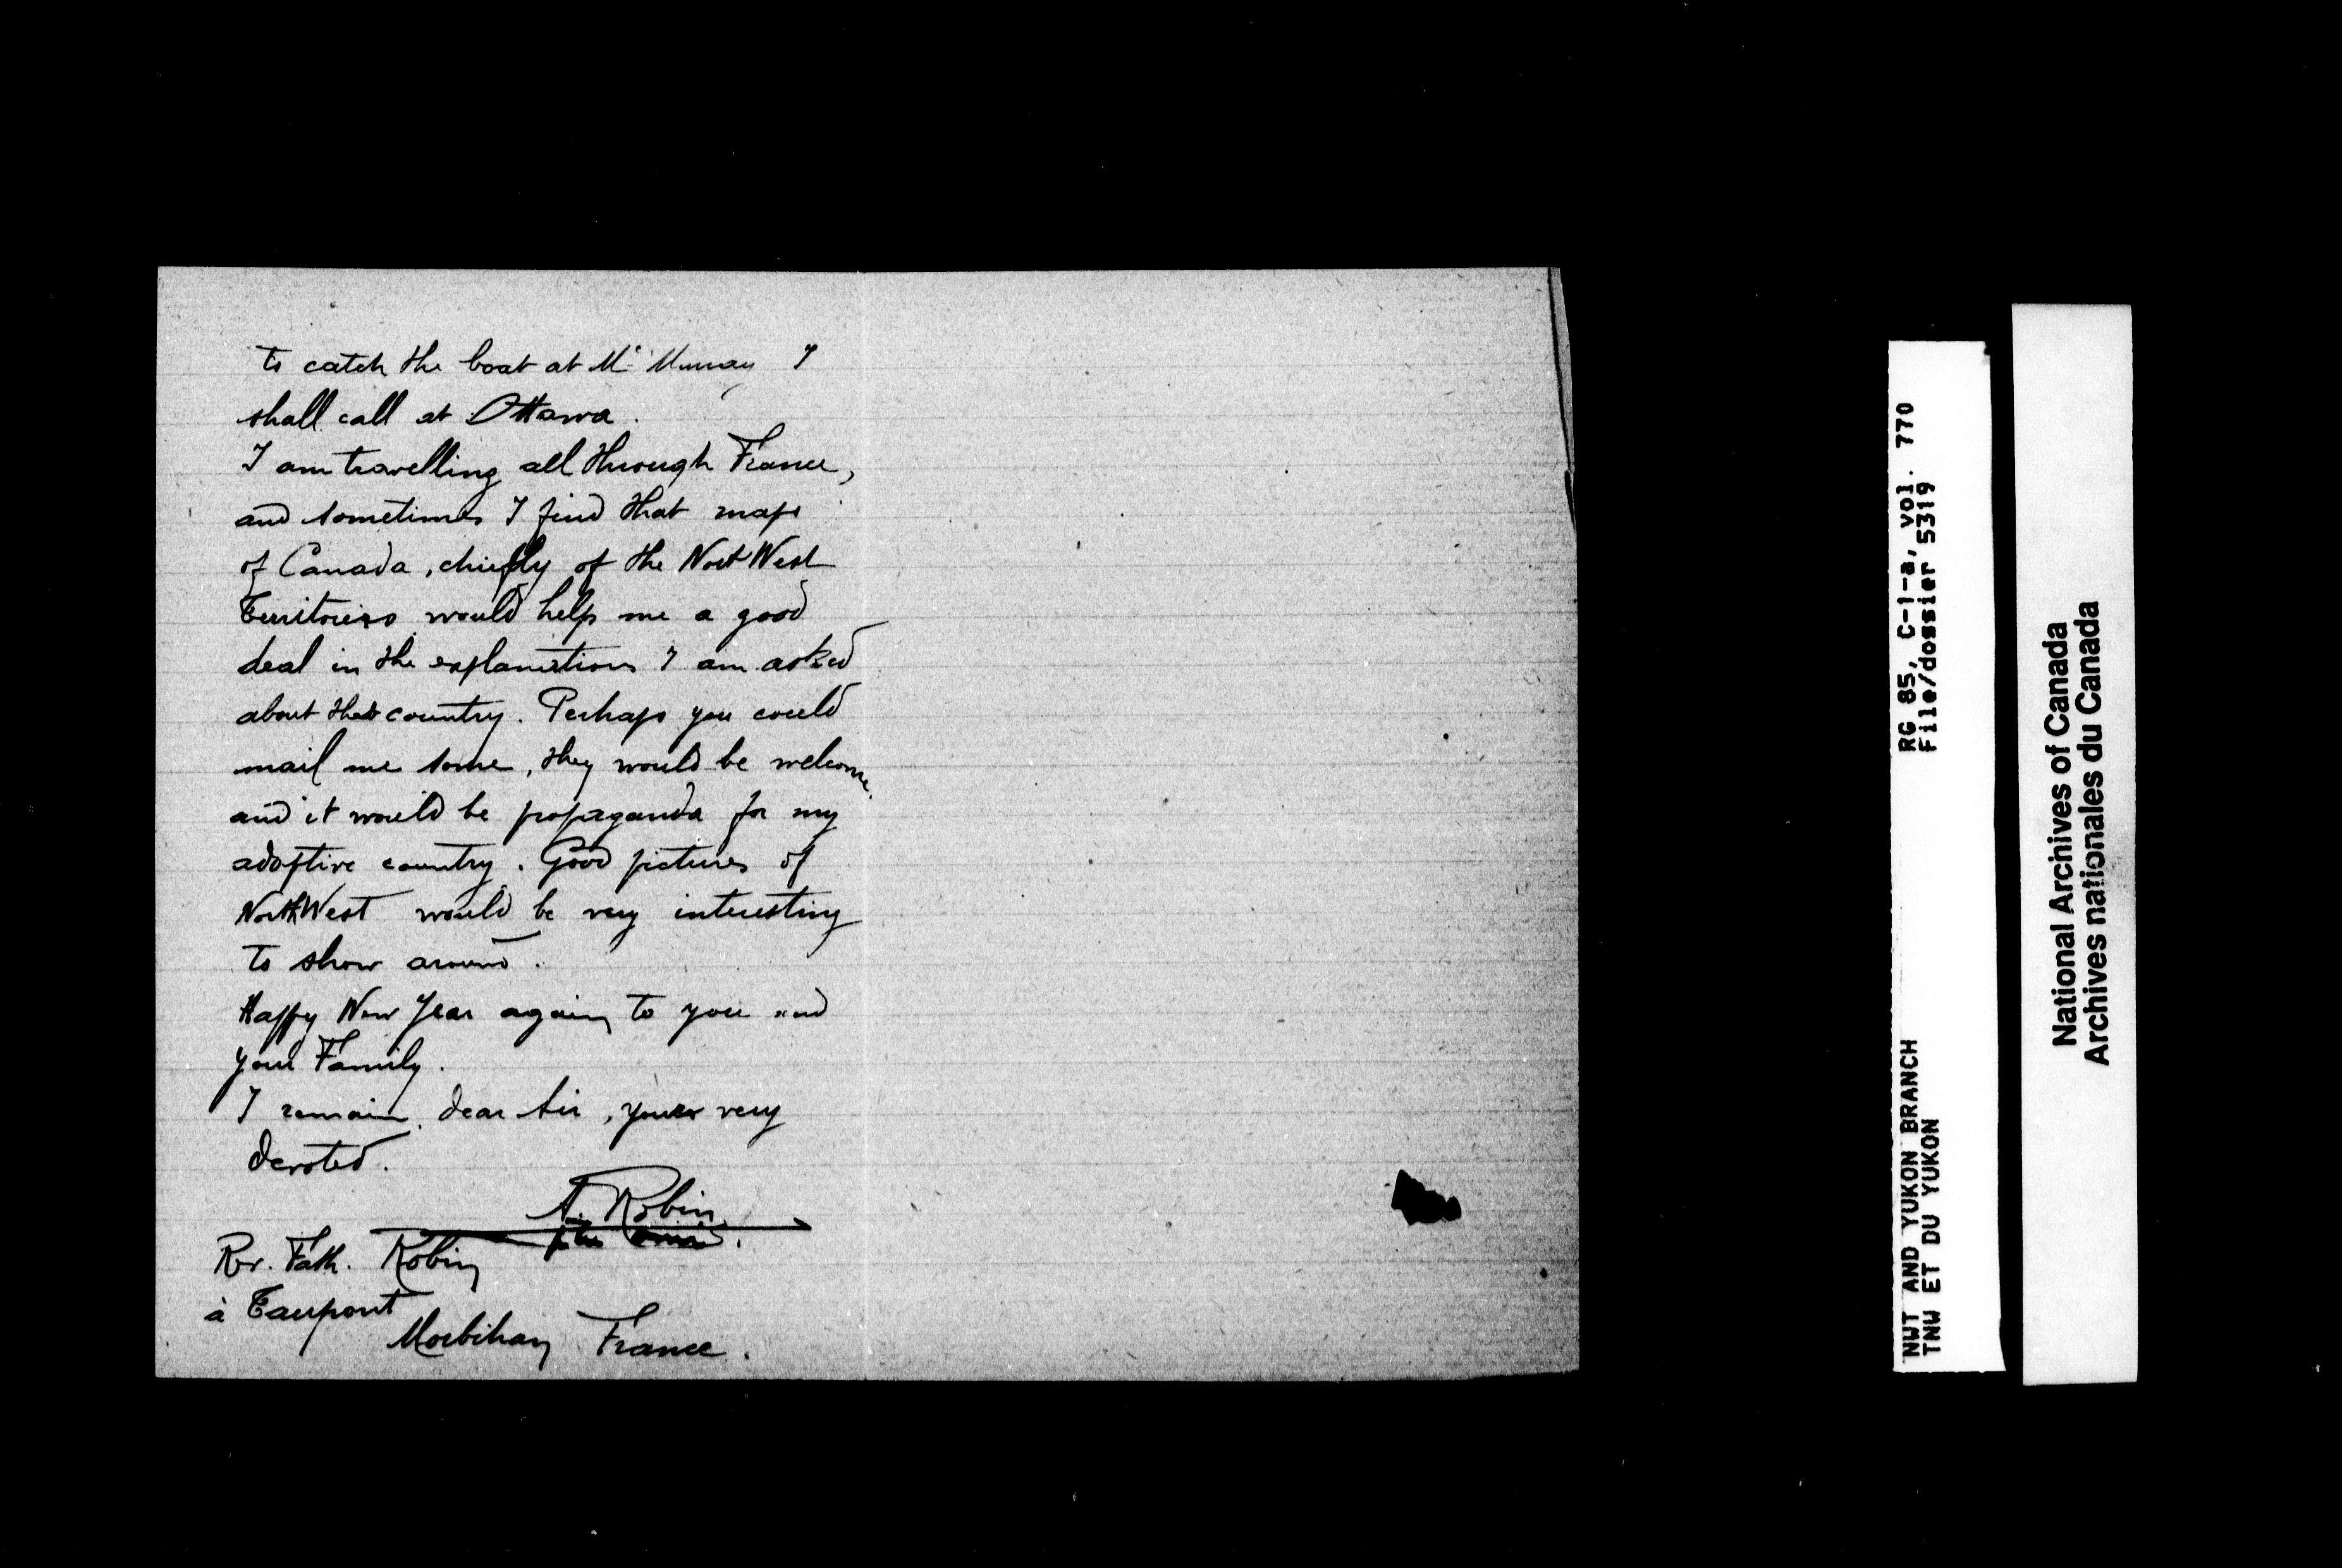 to catch the boat at Mc Murray I
shall call at Ottawa.
I am travelling all through France,
and sometimes I find that maps
of Canada, chiefly of the Nort West
Territories would help me a good
deal in the explanations I am asked
about that country. Perhaps you could
mail me some, they would be welcome.
and it would be propaganda for my
adoptive country. Good pictures of
North West would be very interesting
to show around.
Happy New Year again to you and
your Family.
I remain, dear Sir, yours very
devoted.
A. Robin
Rev. Fath. Robin
à Taupont
Morbihan France.
RG 85, C-1-a, vol. 770
File/dossier 5319
NWT AND YUKON BRANCH
TNW ET DU YUKON
National Archives of Canada
Archives nationales du Canada